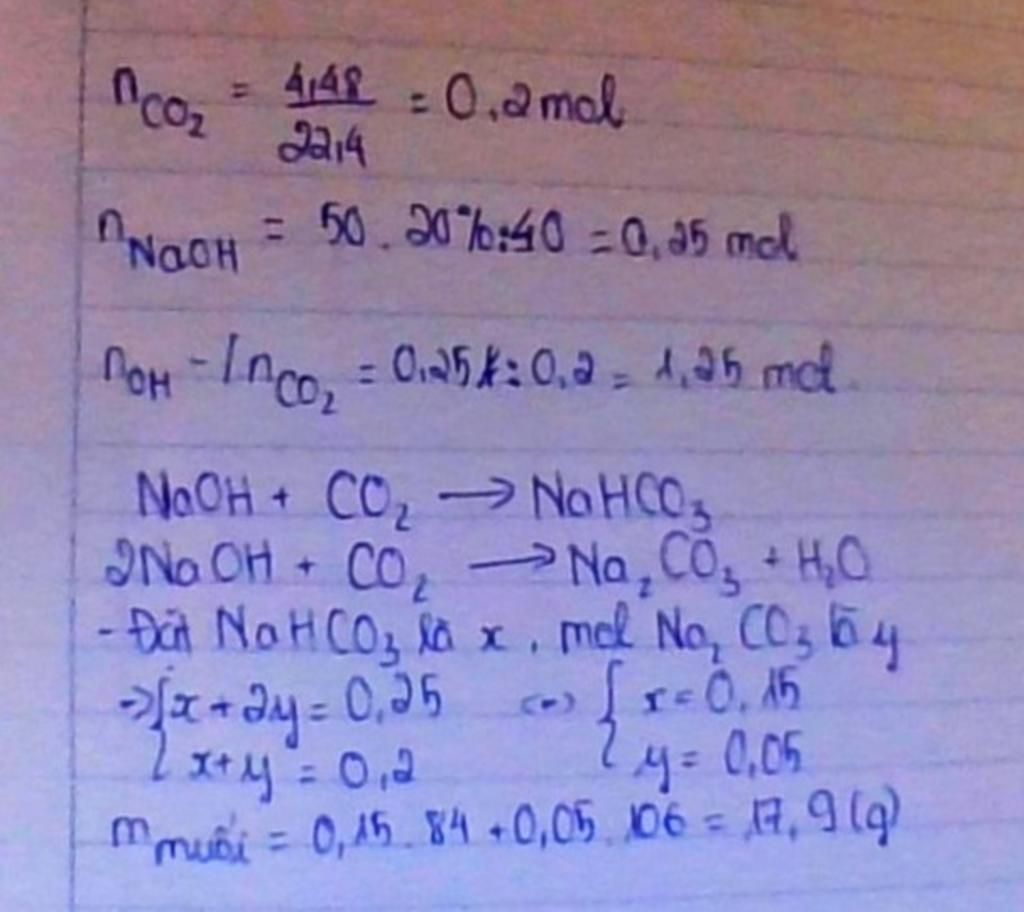 nCO₂ = 4,48/22,4 = 0,2 mol
nNaOH = 50 . 20% : 40 = 0,25 mol
nOH - / nCO₂ = 0,25 : 0,2 = 1,25 mol
NaOH + CO₂ → NaHCO₃
2NaOH + CO₂ → Na₂CO₃ + H₂O
- Đặt NaHCO₃ là x , mol Na₂CO₃ là y
=> { x + 2y = 0,25 <=> { x = 0,15
{ x + y = 0,2 { y = 0,05
m muối = 0,15 . 84 + 0,05 . 106 = 17,9 (g)